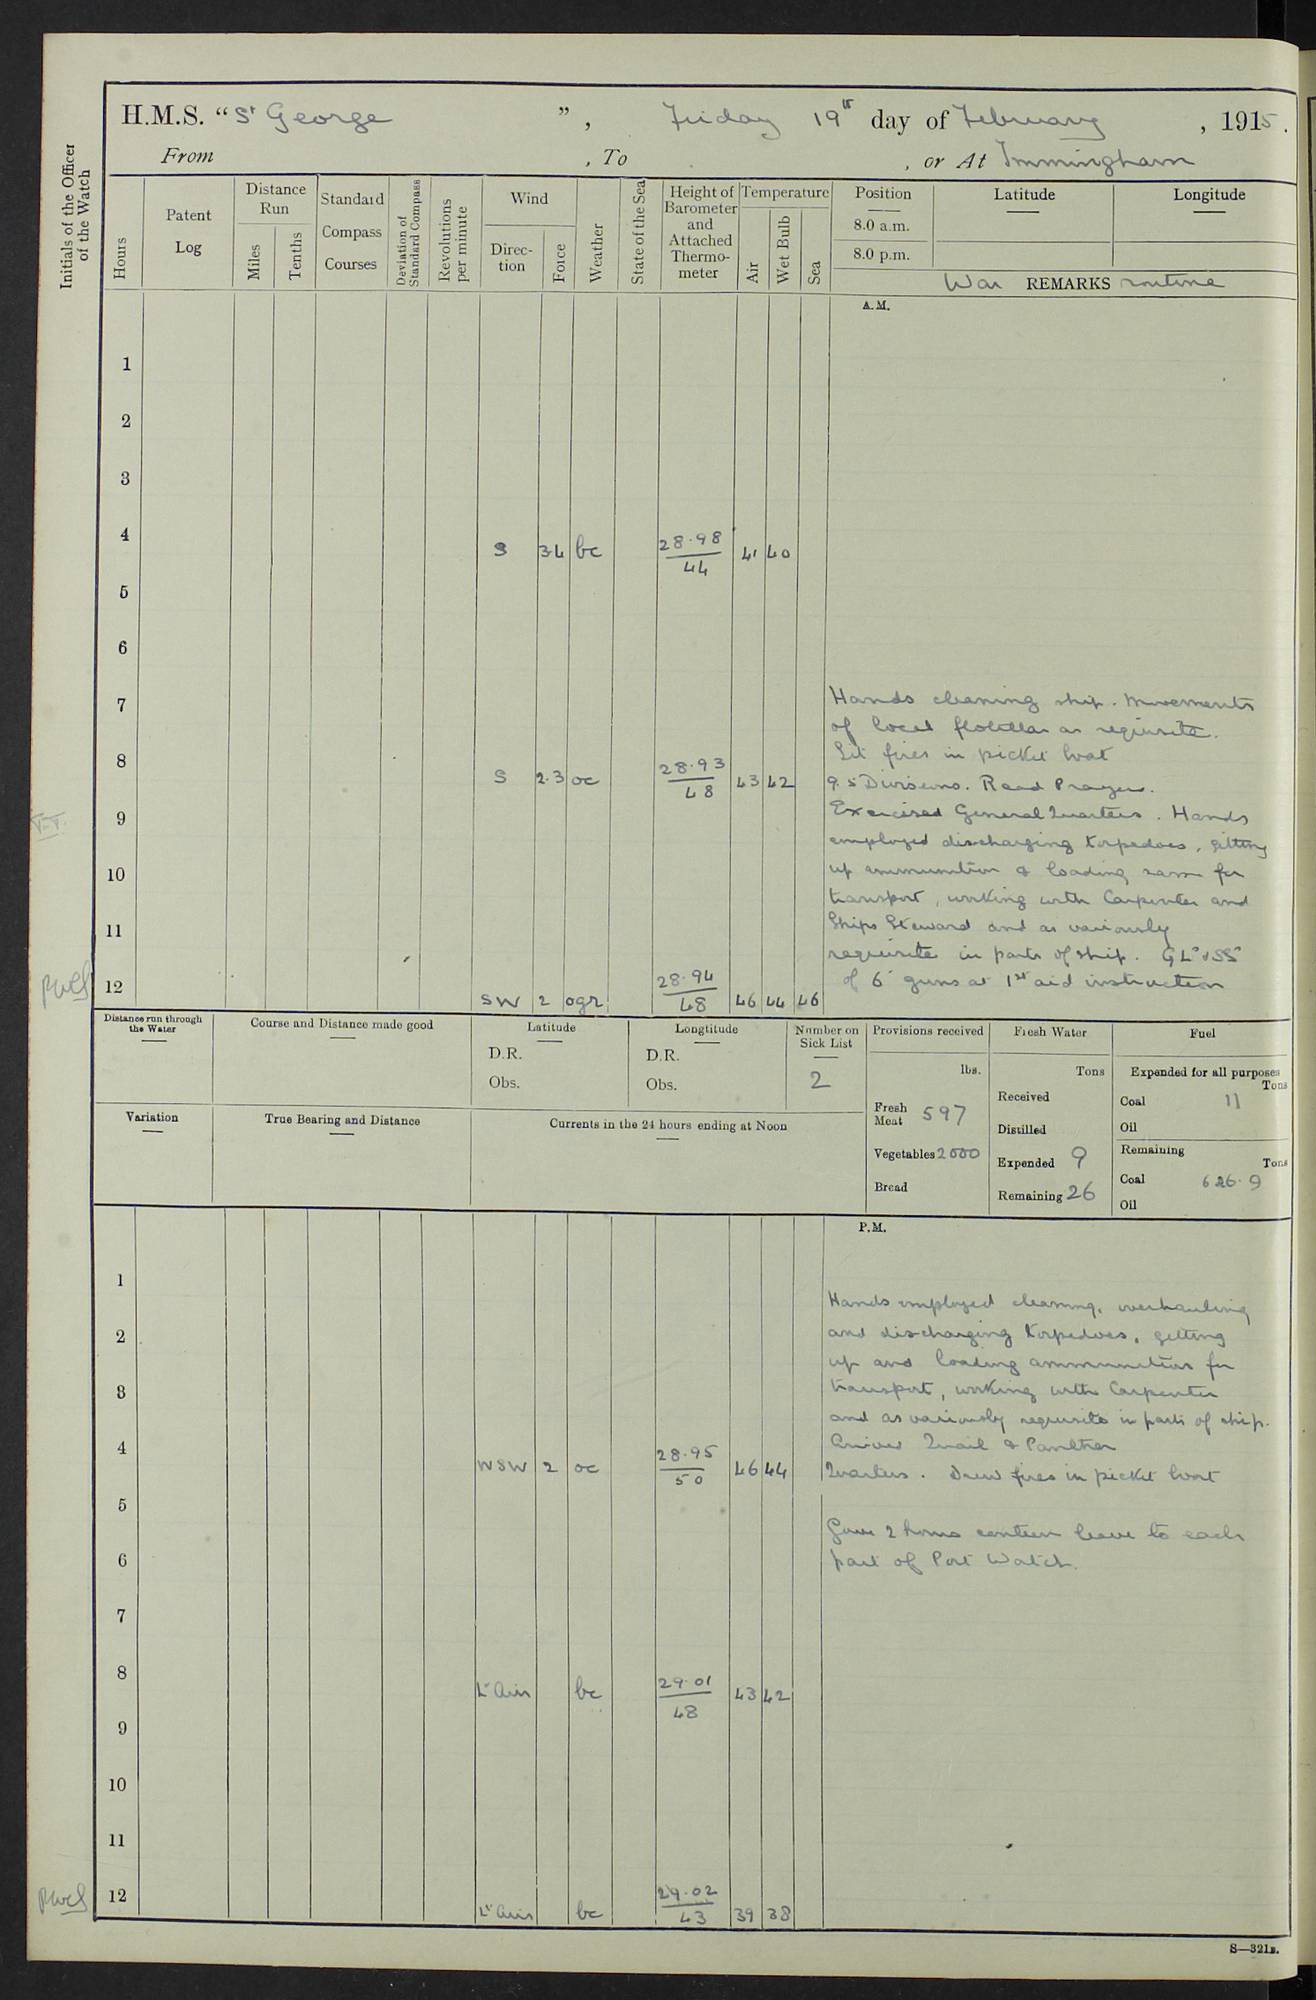 H.M.S. "St George", Friday 19th day of February, 1915.
From , To , or At Immingham
Initials of the Officer of the Watch
Hours
Patent Log
Distance Run
Miles
Tenths
Standard Compass Courses
Deviation of Standard Compass
Revolutions per minute
Wind
Direc-tion
Force
Weather
State of the Sea
Height of Barometer and Attached Thermo-meter
Temperature
Air
Wet Bulb
Sea
Position
8.0 a.m.
8.0 p.m.
Latitude
Longitude
War REMARKS routine
A.M.
1
2
3
4 S 3.4 bc 28.98 44 41 40
5
6
7 Hands cleaning ship. Movements
of local flotillas as requisite.
Lit fires in picket boat
8 S 2.3 oc 28.93 48 43 42
9.5 Divisions. Read Prayers.
9 Exercised General Quarters. Hands
employed discharging torpedoes, getting
10 up ammunition & loading same for
transport, working with Carpenter and
11 Ships Steward and as variously
requisite in parts of ship. GLs & SSs
12 SW 2 ogr 28.94 48 46 44 46
of 6" guns at 1st aid instruction
Distance run through the Water
Course and Distance made good
Latitude
D.R.
Obs.
Longtitude
D.R.
Obs.
Number on Sick List
2
Provisions received
lbs.
Fresh Meat 597
Vegetables 2000
Bread
Fresh Water
Tons
Received
Distilled
Expended 9
Remaining 26
Fuel
Expended for all purposes
Tons
Coal 11
Oil
Remaining
Tons
Coal 626.9
Oil
Variation
True Bearing and Distance
Currents in the 24 hours ending at Noon
P.M.
1
Hands employed cleaning, overhauling
2 and discharging torpedoes, getting
up and loading ammunition for
3 transport, working with Carpenter
and as variously requisite in parts of ship.
4 Arrived Quail & Panther
WSW 2 oc 28.95 50 46 44
Quarters. Drew fires in picket boat
5
Gave 2 hours canteen leave to each
6 part of Port Watch.
7
8 Lt Airs bc 29.01 48 43 42
9
10
11
12 Lt Airs bc 29.02 43 39 38
S—321B.